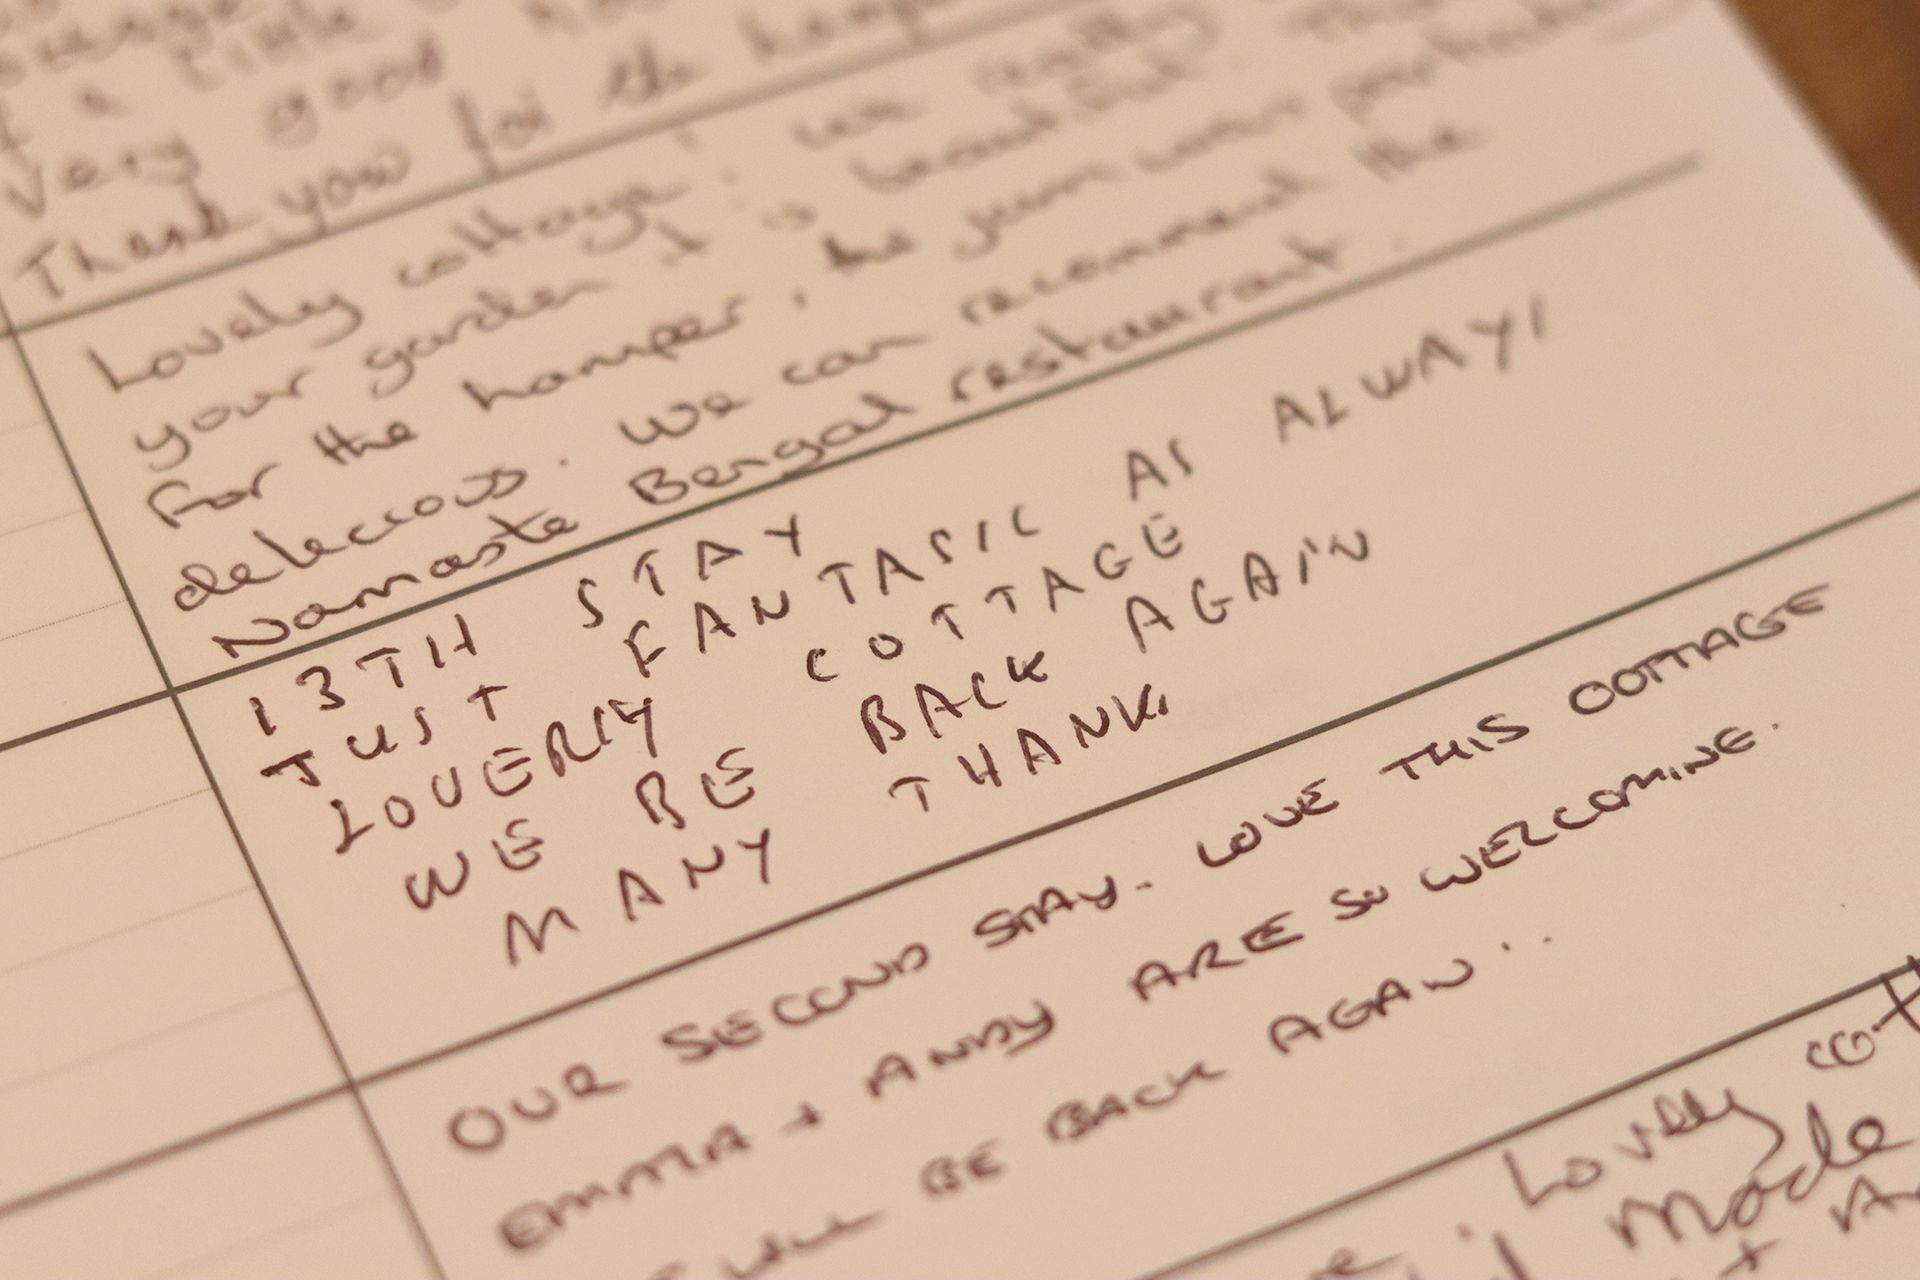 a little
very good
Thank you for the hamper
Lovely cottage, we really
your garden it is beautiful. Thank
for the hamper, the jam was particularly
delecious. We can recommend the
Namaste Bengal restaurant.
13TH STAY
JUST FANTASIC AS ALWAYS
LOVERLY COTTAGE
WE BE BACK AGAIN
MANY THANKS
OUR SECOND STAY. LOVE THIS COTTAGE
EMMA + ANDY ARE SO WELCOMING.
WILL BE BACK AGAIN...
Lovely cot
Made